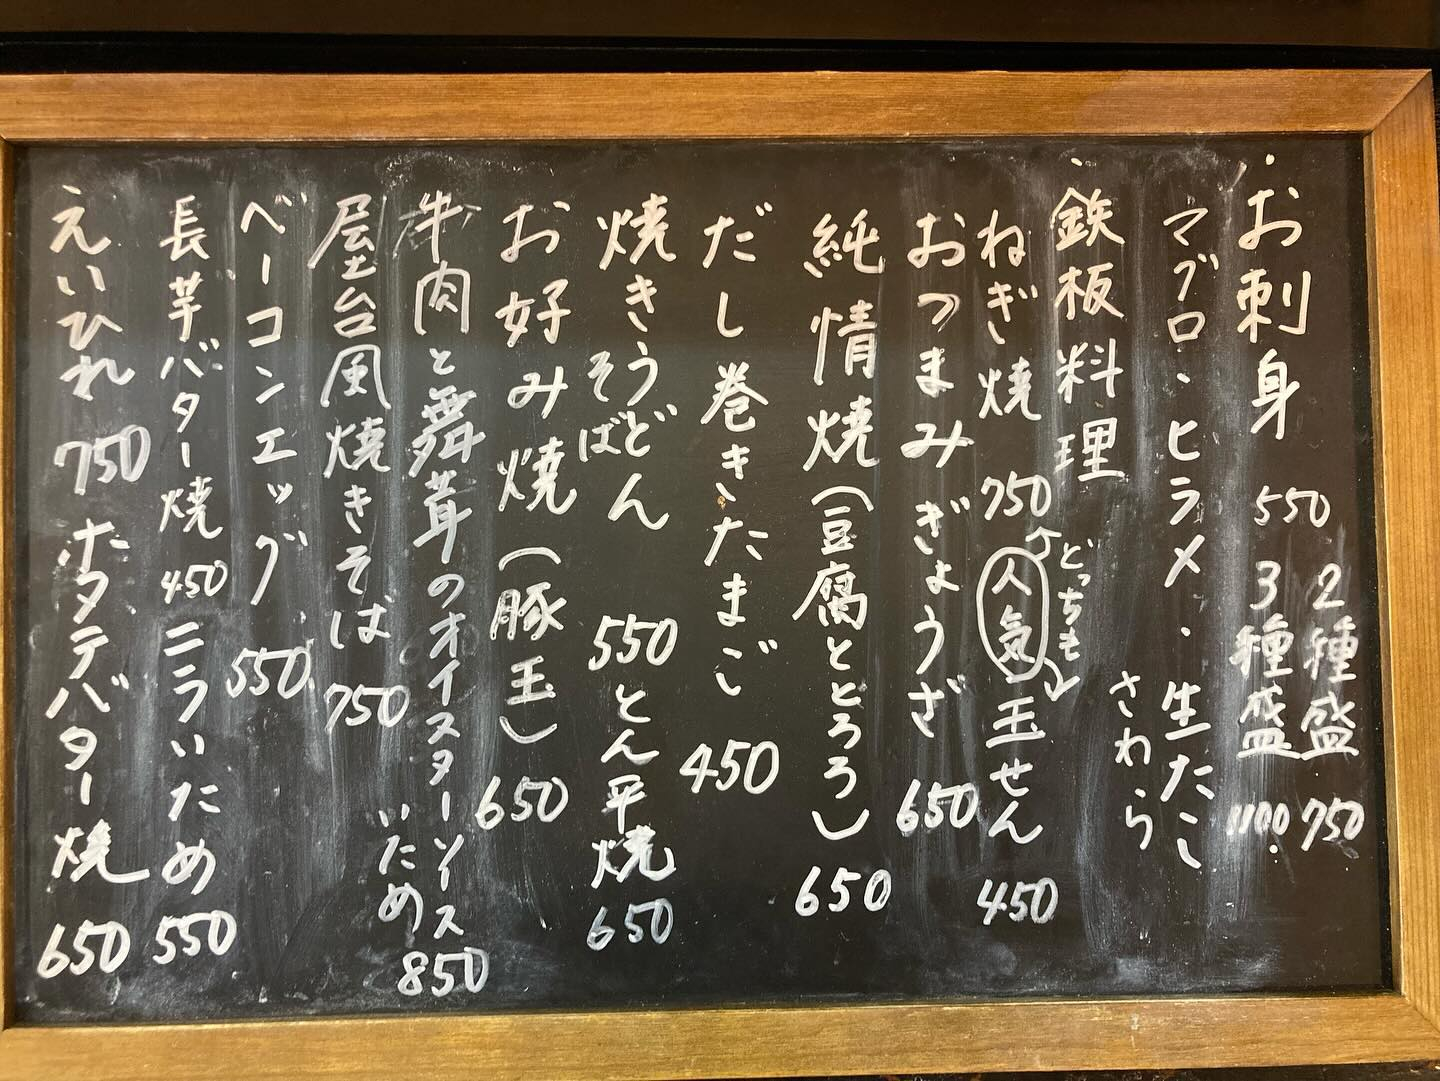 お刺身 550 2種盛 750
3種盛 1100
マグロ・ヒラメ・生たこ
さわら
鉄板料理
ねぎ焼 750 人気 玉せん 450
どっちも
おつまみぎょうざ 650
純情焼(豆腐ととろろ) 650
だし巻きたまご 450
焼きうどん 550 とん平焼 650
そば
お好み焼(豚玉) 650
牛肉と舞茸のオイスターソース
いため 850
屋台風焼きそば 750
ベーコンエッグ 550
長芋バター焼 450 ニラいため 550
えいひれ 750 ホタテバター焼 650